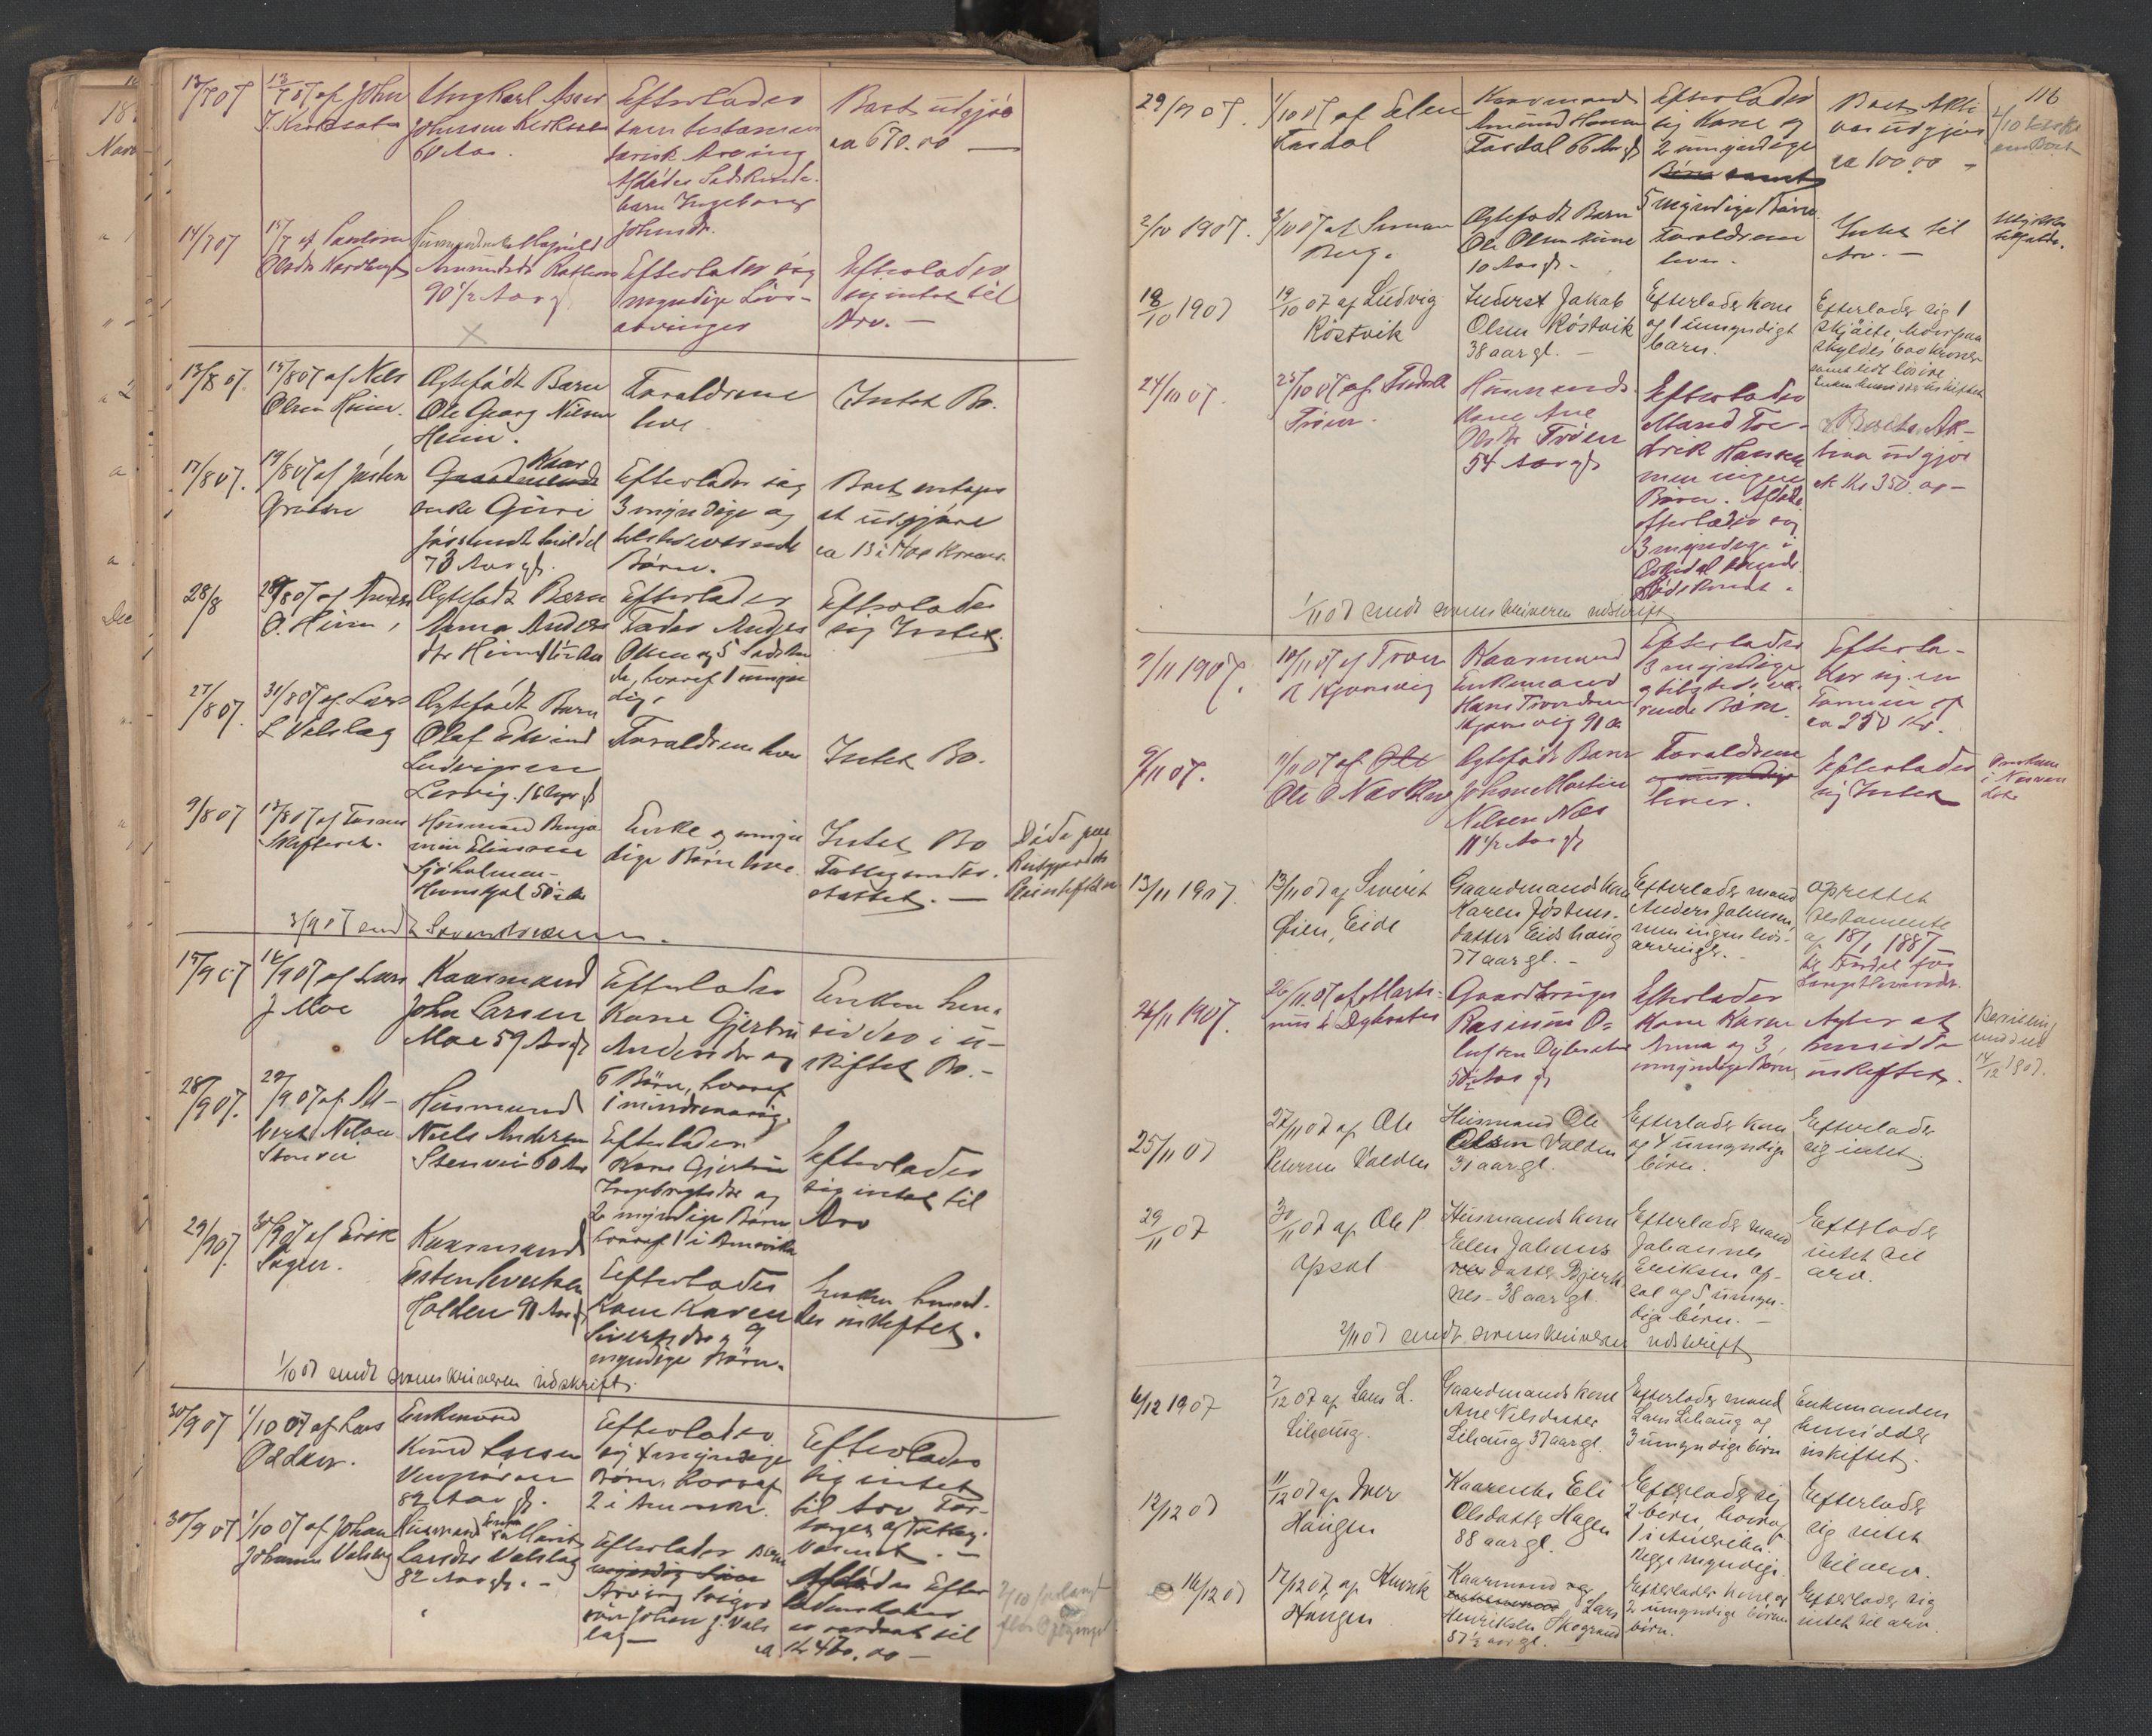 13/7 07
13/7 07 af John
J. Kirksæter
Ungkarl Asser
Johnsen Kirksæter
60 Aar.
Efterlader
som testamen
tarisk Arving
Afdødes Sødskende-
barn Ingeborg
Johnsdr.
Boet udgjør
ca 670.00 —
14/7 07
15/7 af
Olsdr Nordberg
Amundsdr
90 1/2 Aar gl
Efterlader sig
myndige Livs-
arvinger
Efterlader
sig intet til
Arv. —
13/8 07.
15/8 07 af Nels
Olsen Heim.
Ægtefødt Barn
Ole Georg Nilsen
Heim.
Forældrene
leve
Intet Bo.
17/8 07.
19/8 07 af Josten
Kaar
enke Guri
73 Aar gl.
Efterlader sig
3 myndige og
tilstedeværende
Børn.
Boet antages
at udgjøre
ca 13 à 1400 Kroner.
28/8
29/8 07 af Anders
O. Heim,
Ægtefødt Barn
Anna Anders
dtr Heim
Efterlader
Fader Anders
Olsen og 5 Sødsken
de, hvoraf 1 umyn
dig.
Efterlader
sig Intet.
27/8 07.
31/8 07 af Lars
L Valslag
Ægtefødt Barn
Olaf Edvind
Ludvigsen
Lervig. 16 Uger gl
Forældrene lever
Intet Bo.
9/8 07
13/8 07 af
Skifteret.
Husmand Benja
min Eliassen
Sjøholmen-
Hevnskjel 50 1/2 Aar
Enke og umyn
dige Børn leve.
Intet Bo
Fattigunder-
støttet. —
Døde paa
Reitgjerdet
Pleiestiftelse
3/9 07 sendt Sorenskriveren.
15/9 07
16/9 07 af Lars
J Moe
Kaarmand
John Larsen
Moe 59 Aar gl
Efterlader
Kone Gjertru
Andersdr og
6 Børn, hvoraf
1 mindreaarig.
Enken hen-
sidder i u-
skiftet Bo.-
28/9 07.
29/9 07 af Si-
vert Nilsen
Stenvei
Husmand
Niels Andersen
Stenvei 60 Aar
Efterlader
Kone Gjertrue
Ingebrigtsdtr og
2 myndige Børn
hvoraf 1 i Amerika
Efterlader
sig intet til
Arv
29/9 07.
30/9 07 af Erik
Søgen.
Kaarmand
Esten Sivertsen
Holden 90 Aar gl
Efterlader
Kone Karen
Sivertsdtr og 9
myndige Børn.
Enken hensid-
der i uskiftet.
1/10 07 sendt sorenskriveren udskrift.
30/9 07
1/10 07 af Lars
Oldker.
Enkemand
Knud Larsen
82 Aar gl.
Efterlader
sig 4 myndige
Børn, hvoraf
2 i Amerika.
Efterlader
sig intet
til Arv For-
sørges af Fattig-
væsenet. —
30/9 07
1/10 07 af Johan
Johansen Valslag
Husmands enke Marit
Larsdtr Valslag
82 Aar gl. -
Efterlader Børn
Arving
søn Johan J. Vals
lag —
Afdødes Efter
ladenskaber
er vurderet til
ca Kr 470.00 —
116
29/9 07.
1/10 07 af Elen
Tasdal
Kaarmand
Amund Hansen
Tasdal 66 Aar gl
Efterlader
sig Kone og
2 umyndige
Børn samt
5 myndige Børn.
Boets Akti
var udgjør
ca 100.00 -
2/10 1907.
3/10 07 af Simon
Berg.
Ægtefødt Barn
Ole Olsen Aune
10 Aar gl. -
Forældrene
lever. -
Intet til
Arv. —
Ulykkes
tilfælde.
18/10 1907
19/10 07 af Ludvig
Røstvik
Inderst Jakob
Olsen Røstvik
38 aar gl. —
Efterlader kone
og 1 umyndigt
barn.
Efterlader sig 1
skjøite, hvorpaa
skyldes 600 kroner
samt lidt løsøre
Enken hensidder i uskiftet
24/10 07.
25/10 07 af Fredrik
Trøen.
Husmands-
kone Ane
Olsdtr Trøen
54 Aar gl
Efterlader
Mand Fre-
drik Hansen
men ingen
Børn. Afdøde
efterlader sig
3 myndige i
boende
Sødskende.
Boets Ak-
tiva udgjør
ca Kr 350.00 —
1/11 07 sendt sorenskriveren udskrift
9/11 1907.
10/11 07 af Tron
A Kjørsvig
Kaarmand
Enkemand
Hans Trondsen
Kjørsvig 91 Aar
Efterlader
3 myndige
og tilstedevæ-
rende Børn.
Efterla-
der sig en
Formue af
ca 250 Kr.
9/11 07.
11/11 07 af Ole
Ole O Næs
Ægtefødt Barn
Johan Martin
Nilsen Næs
11 1/2 Aar gl
Forældrene
og umyndige
lever.
Efterlader
sig Intet
Omkom
i Næsvan
det
13/11 1907.
13/11 07 af Sivert
Øien, Eide
Gaardmandskone
Karen Jøstens-
datter Eidshaug
77 aar gl. -
Efterlader mand
Anders Johnsen,
men ingen livs-
arvinger. -
oprettet
testamente
af 18/1 1887 —
til Fordel for
Længstlevende.
24/11 1907.
26/11 07 af Mart-
nus L Dybsæter
Gaardbruger
Rasmus O-
lufsen Dybsæter
50 1/2 Aar gl
Efterlader
Kone Karen
Anna og 3
umyndige Børn
Agter at
hensidde
uskiftet.
Bevilling
meddelt
14/12 1907.
25/11 07
27/11 07 af Ole
Petersen Valden
Husmand Ole
Olsen Valden
31 aar gl.
Efterlader kone
og 4 umyndige
børn.
Efterlader
sig intet.
29/11 07
30/11 07 af Ole P
Opsal
Husmandskone
Elen Johans
datter Bjerk
nes - 38 aar gl
Efterlader mand
Johannes
Eriksen Op-
sal og 5 umyn-
dige børn. —
Efterlader
intet til
arv.
2/11 07 sendt sorenskriveren udskrift
6/12 1907
7/12 07 af Lars L.
Lihaug.
Gaardmandskone
Ane Nilsdatter
Lihaug 37 aar gl.
Efterlader mand
Lars Lihaug og
3 umyndige børn
Enkemanden
hensidder
uskiftet.
12/12 07
11/12 07 af Iver
Haugen
Kaarenke Eli
Olsdatter Hagen
88 aar gl.
Efterlader sig
2 børn, hvoraf
1 i Amerika.
Begge myndige.
Efterlader
sig intet
til arv.
16/12 07
17/12 07 af Henrik
Haugen
Kaarmand og
Lars
Henriksen Skogrand
87 1/2 aar gl.
Efterlader kone og
2 umyndige børne
børn.
Efterlader sig
intet til arv.